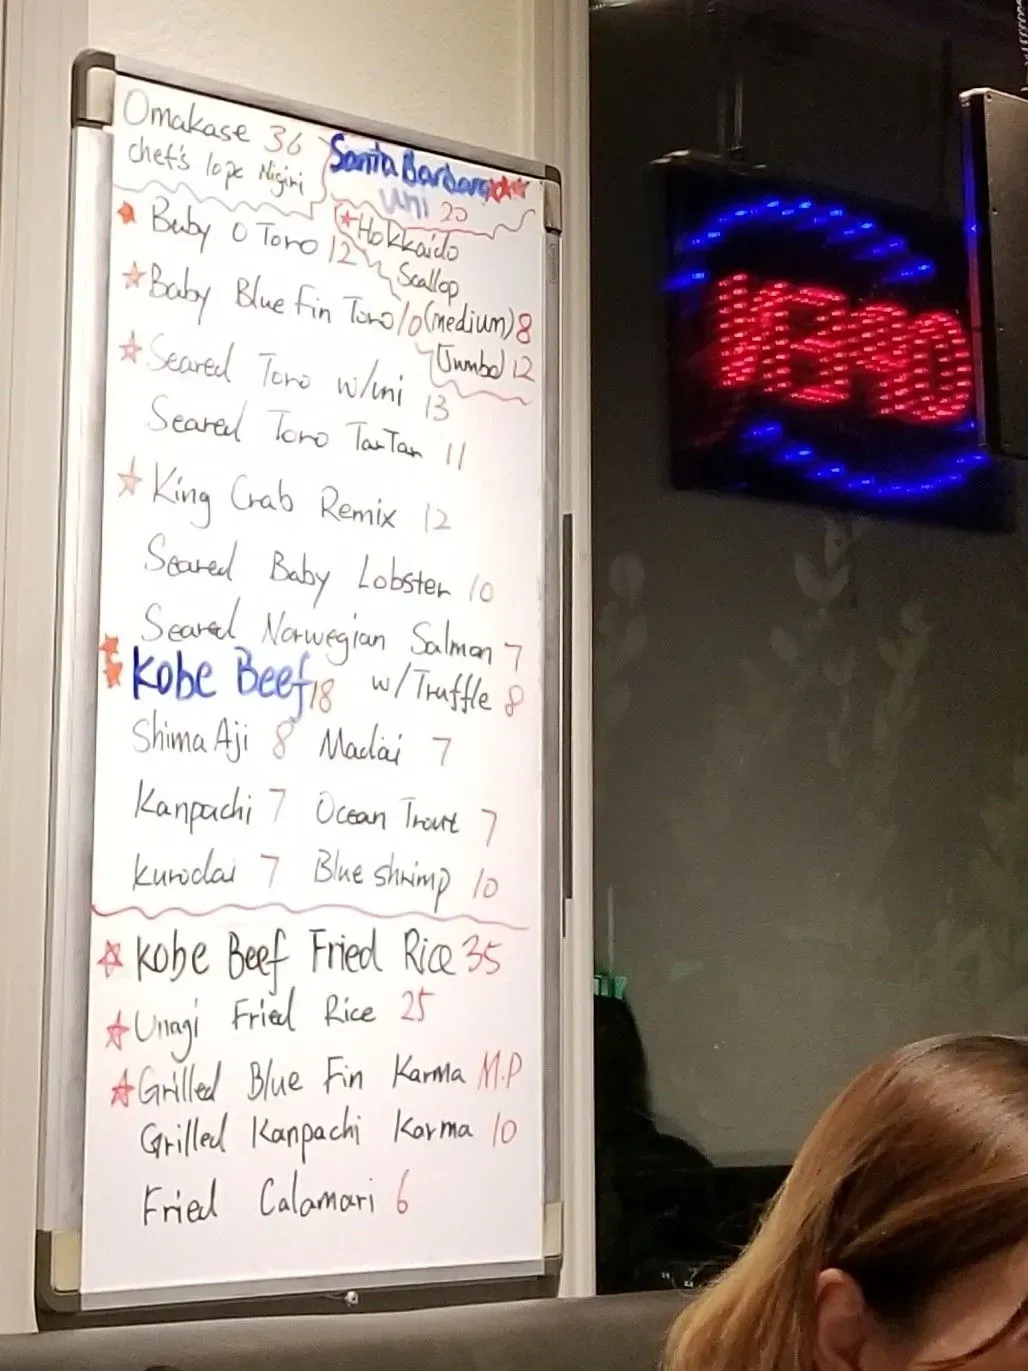 Omakase 36
chef's 10pc Nigiri
Santa Barbara
Uni 20
Baby O Toro 12
Hokkaido
Scallop
(medium) 8
(Jumbo) 12
Baby Blue Fin Toro 10
Seared Toro w/uni 13
Seared Toro TarTar 11
King Crab Remix 12
Seared Baby Lobster 10
Seared Norwegian Salmon 7
w/Truffle 8
Kobe Beef 18
Shima Aji 8 Madai 7
Kanpachi 7 Ocean Trout 7
Kurodai 7 Blue shrimp 10
Kobe Beef Fried Rice 35
Unagi Fried Rice 25
Grilled Blue Fin Karma M.P
Grilled Kanpachi Karma 10
Fried Calamari 6